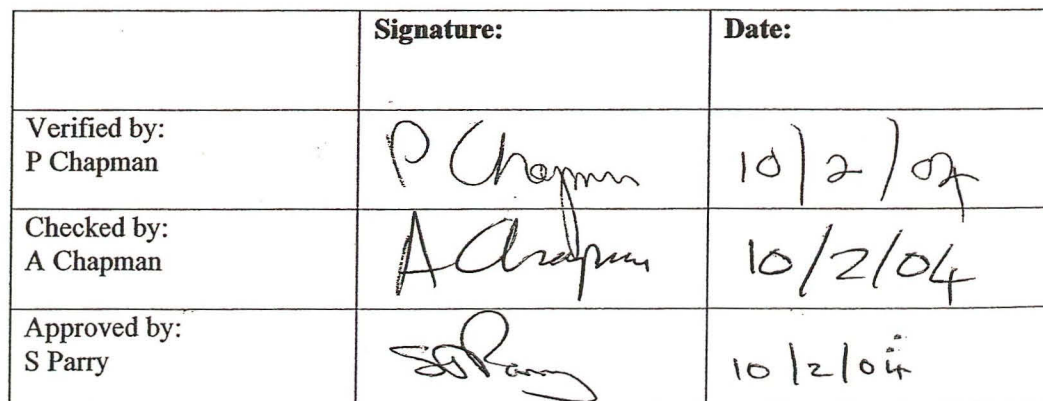 Signature: Date:
Verified by:
P Chapman P Chapman 10/2/04
Checked by:
A Chapman A Chapman 10/2/04
Approved by:
S Parry SD Parry 10/2/04